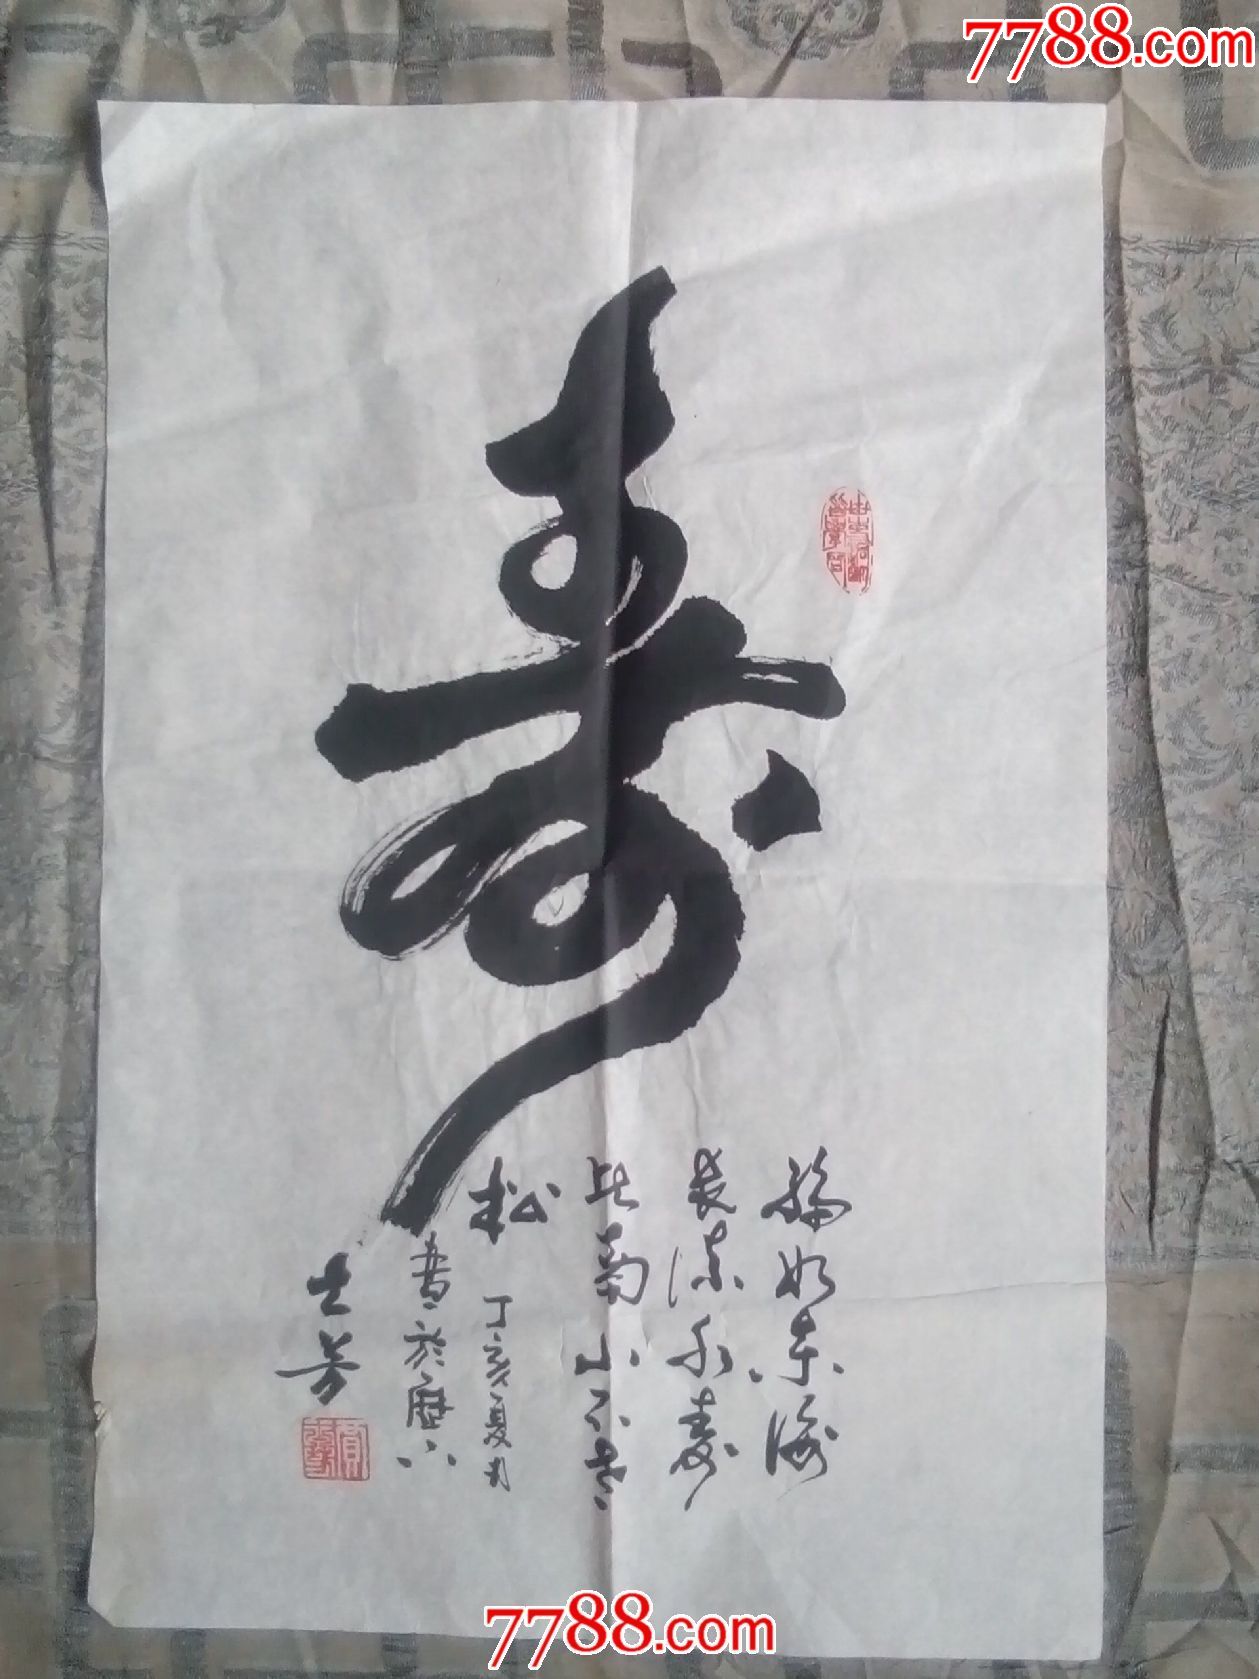 7788.com
壽
福如东海
长流水寿
比南山不老
松
丁亥夏月
书於历下
士芳
7788.com